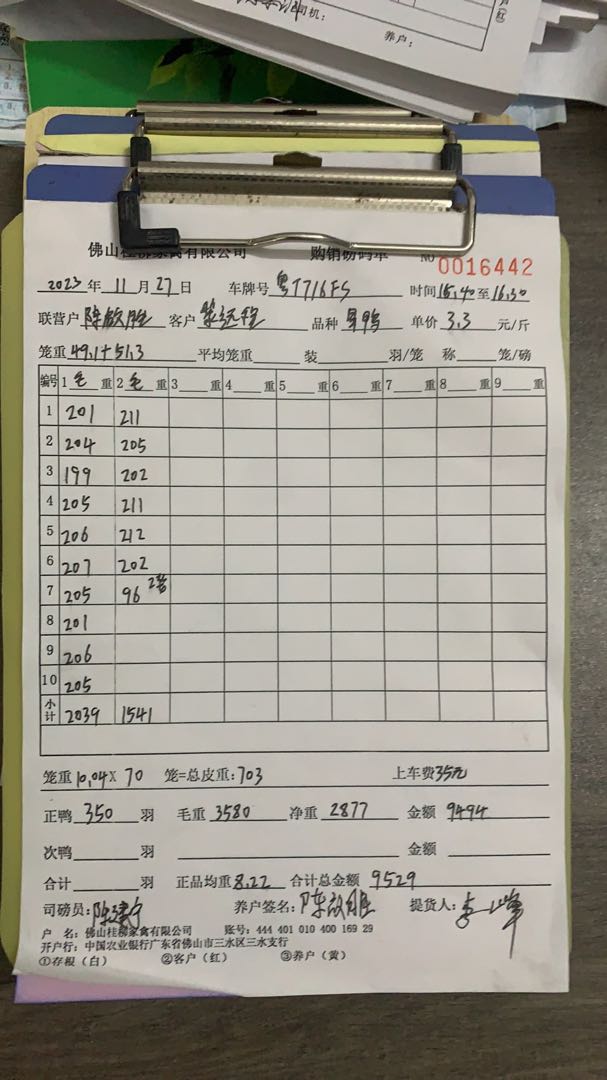 司机：
养户：
户（红）
佛山桂柳家禽有限公司 购销磅码单 NO 0016442
2023 年 11 月 27 日 车牌号 粤T716FS 时间 15.40 至 16.30
联营户 陈啟胜 客户 品种 单价 3.3 元/斤
笼重 49.1+51.3 平均笼重 装 羽/笼 称 笼/磅
编号 1 毛 重 2 毛 重 3 重 4 重 5 重 6 重 7 重 8 重 9 重
1 201 211
2 204 205
3 199 202
4 205 211
5 206 212
6 207 202
7 205 96
8 201
9 206
10 205
小计 2039 1541
笼重 10.04 X 70 笼=总皮重：703 上车费 35元
正鸭 350 羽 毛重 3580 净重 2877 金额 9494
次鸭 羽 金额
合计 羽 正品均重 8.22 合计总金额 9529
司磅员： 养户签名：陈啟胜 提货人：
户 名：佛山桂柳家禽有限公司 账号：444 401 010 400 169 29
开户行：中国农业银行广东省佛山市三水区三水支行
①存根（白） ②客户（红） ③养户（黄）